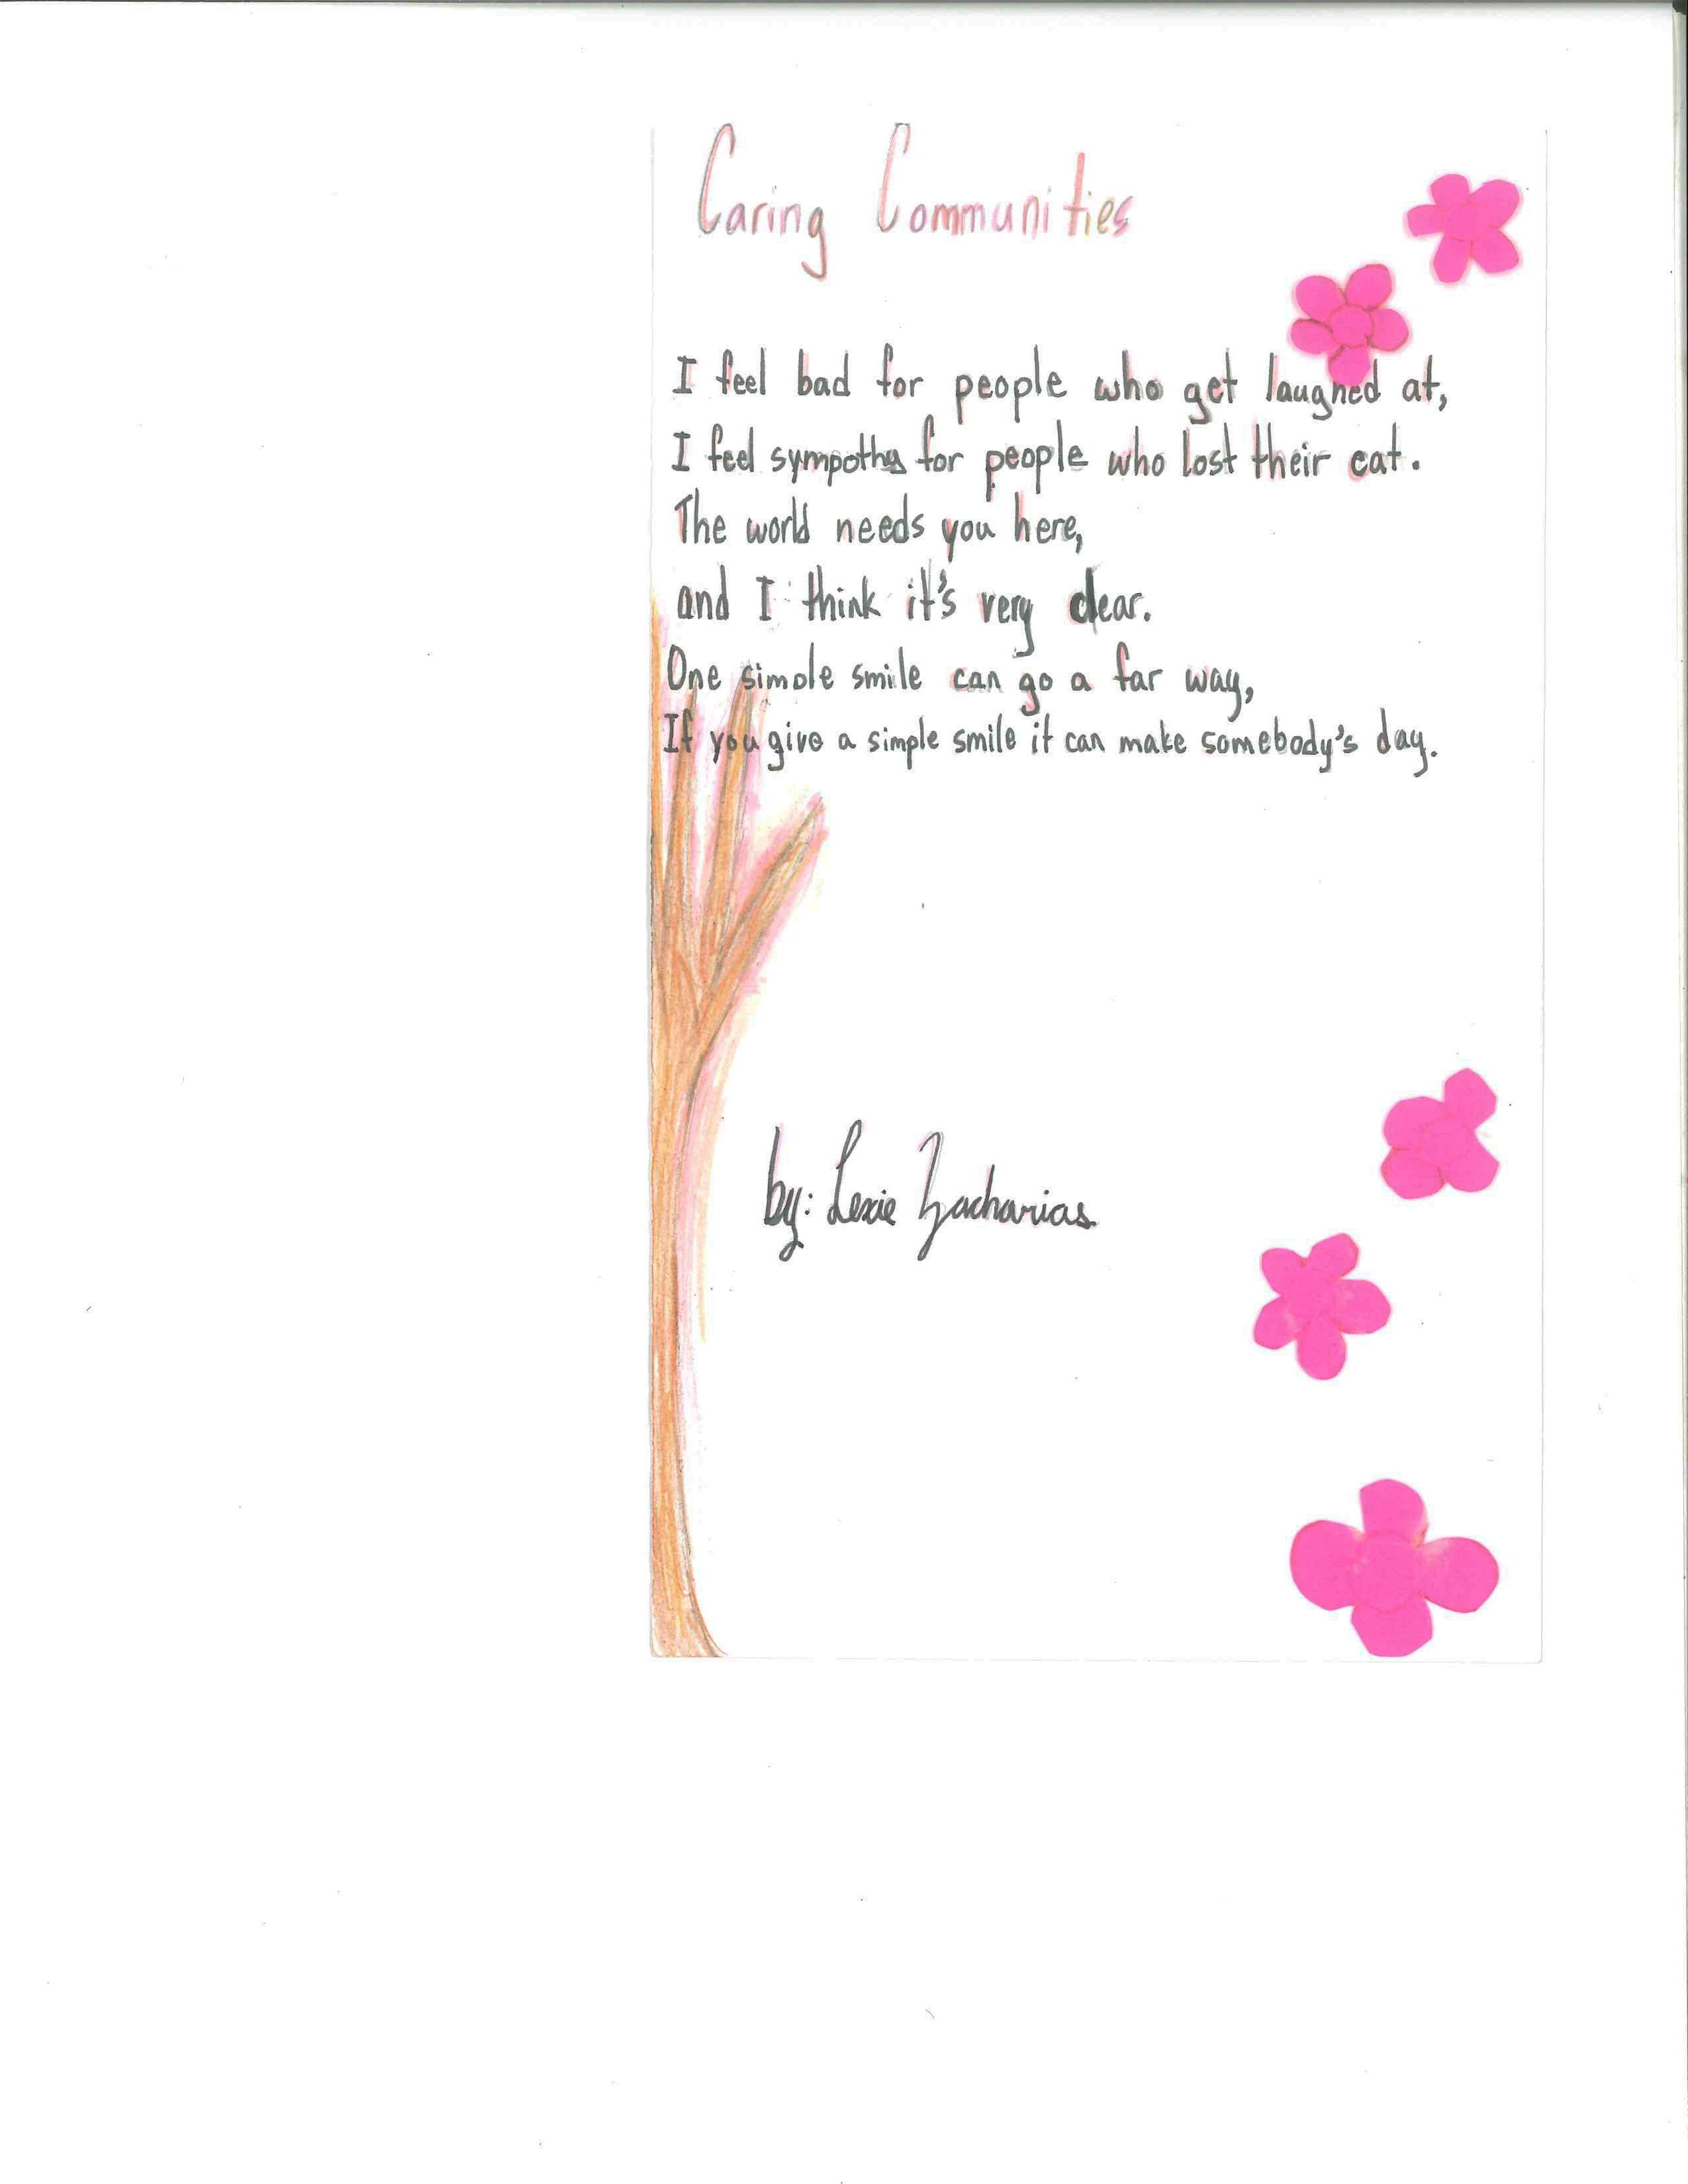 Caring Communities
I feel bad for people who get laughed at,
I feel sympothy for people who lost their cat.
The world needs you here,
and I think it's very clear.
One simple smile can go a far way,
If you give a simple smile it can make somebody's day.
by: Lexie Zacharias